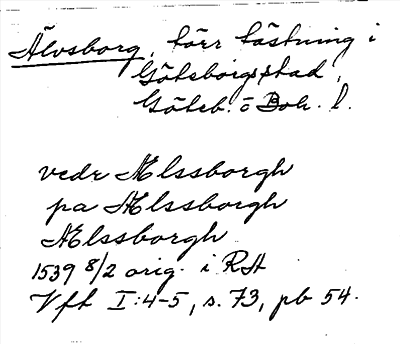 Älvsborg, förr fästning i
Göteborgs stad,
Göteb. o Boh. l.
vedr Ælssborgh
pa Ælssborgh
Ælssborgh
1539 8/2 orig. i RA
Vfh I:4-5, s. 73, pb 54.